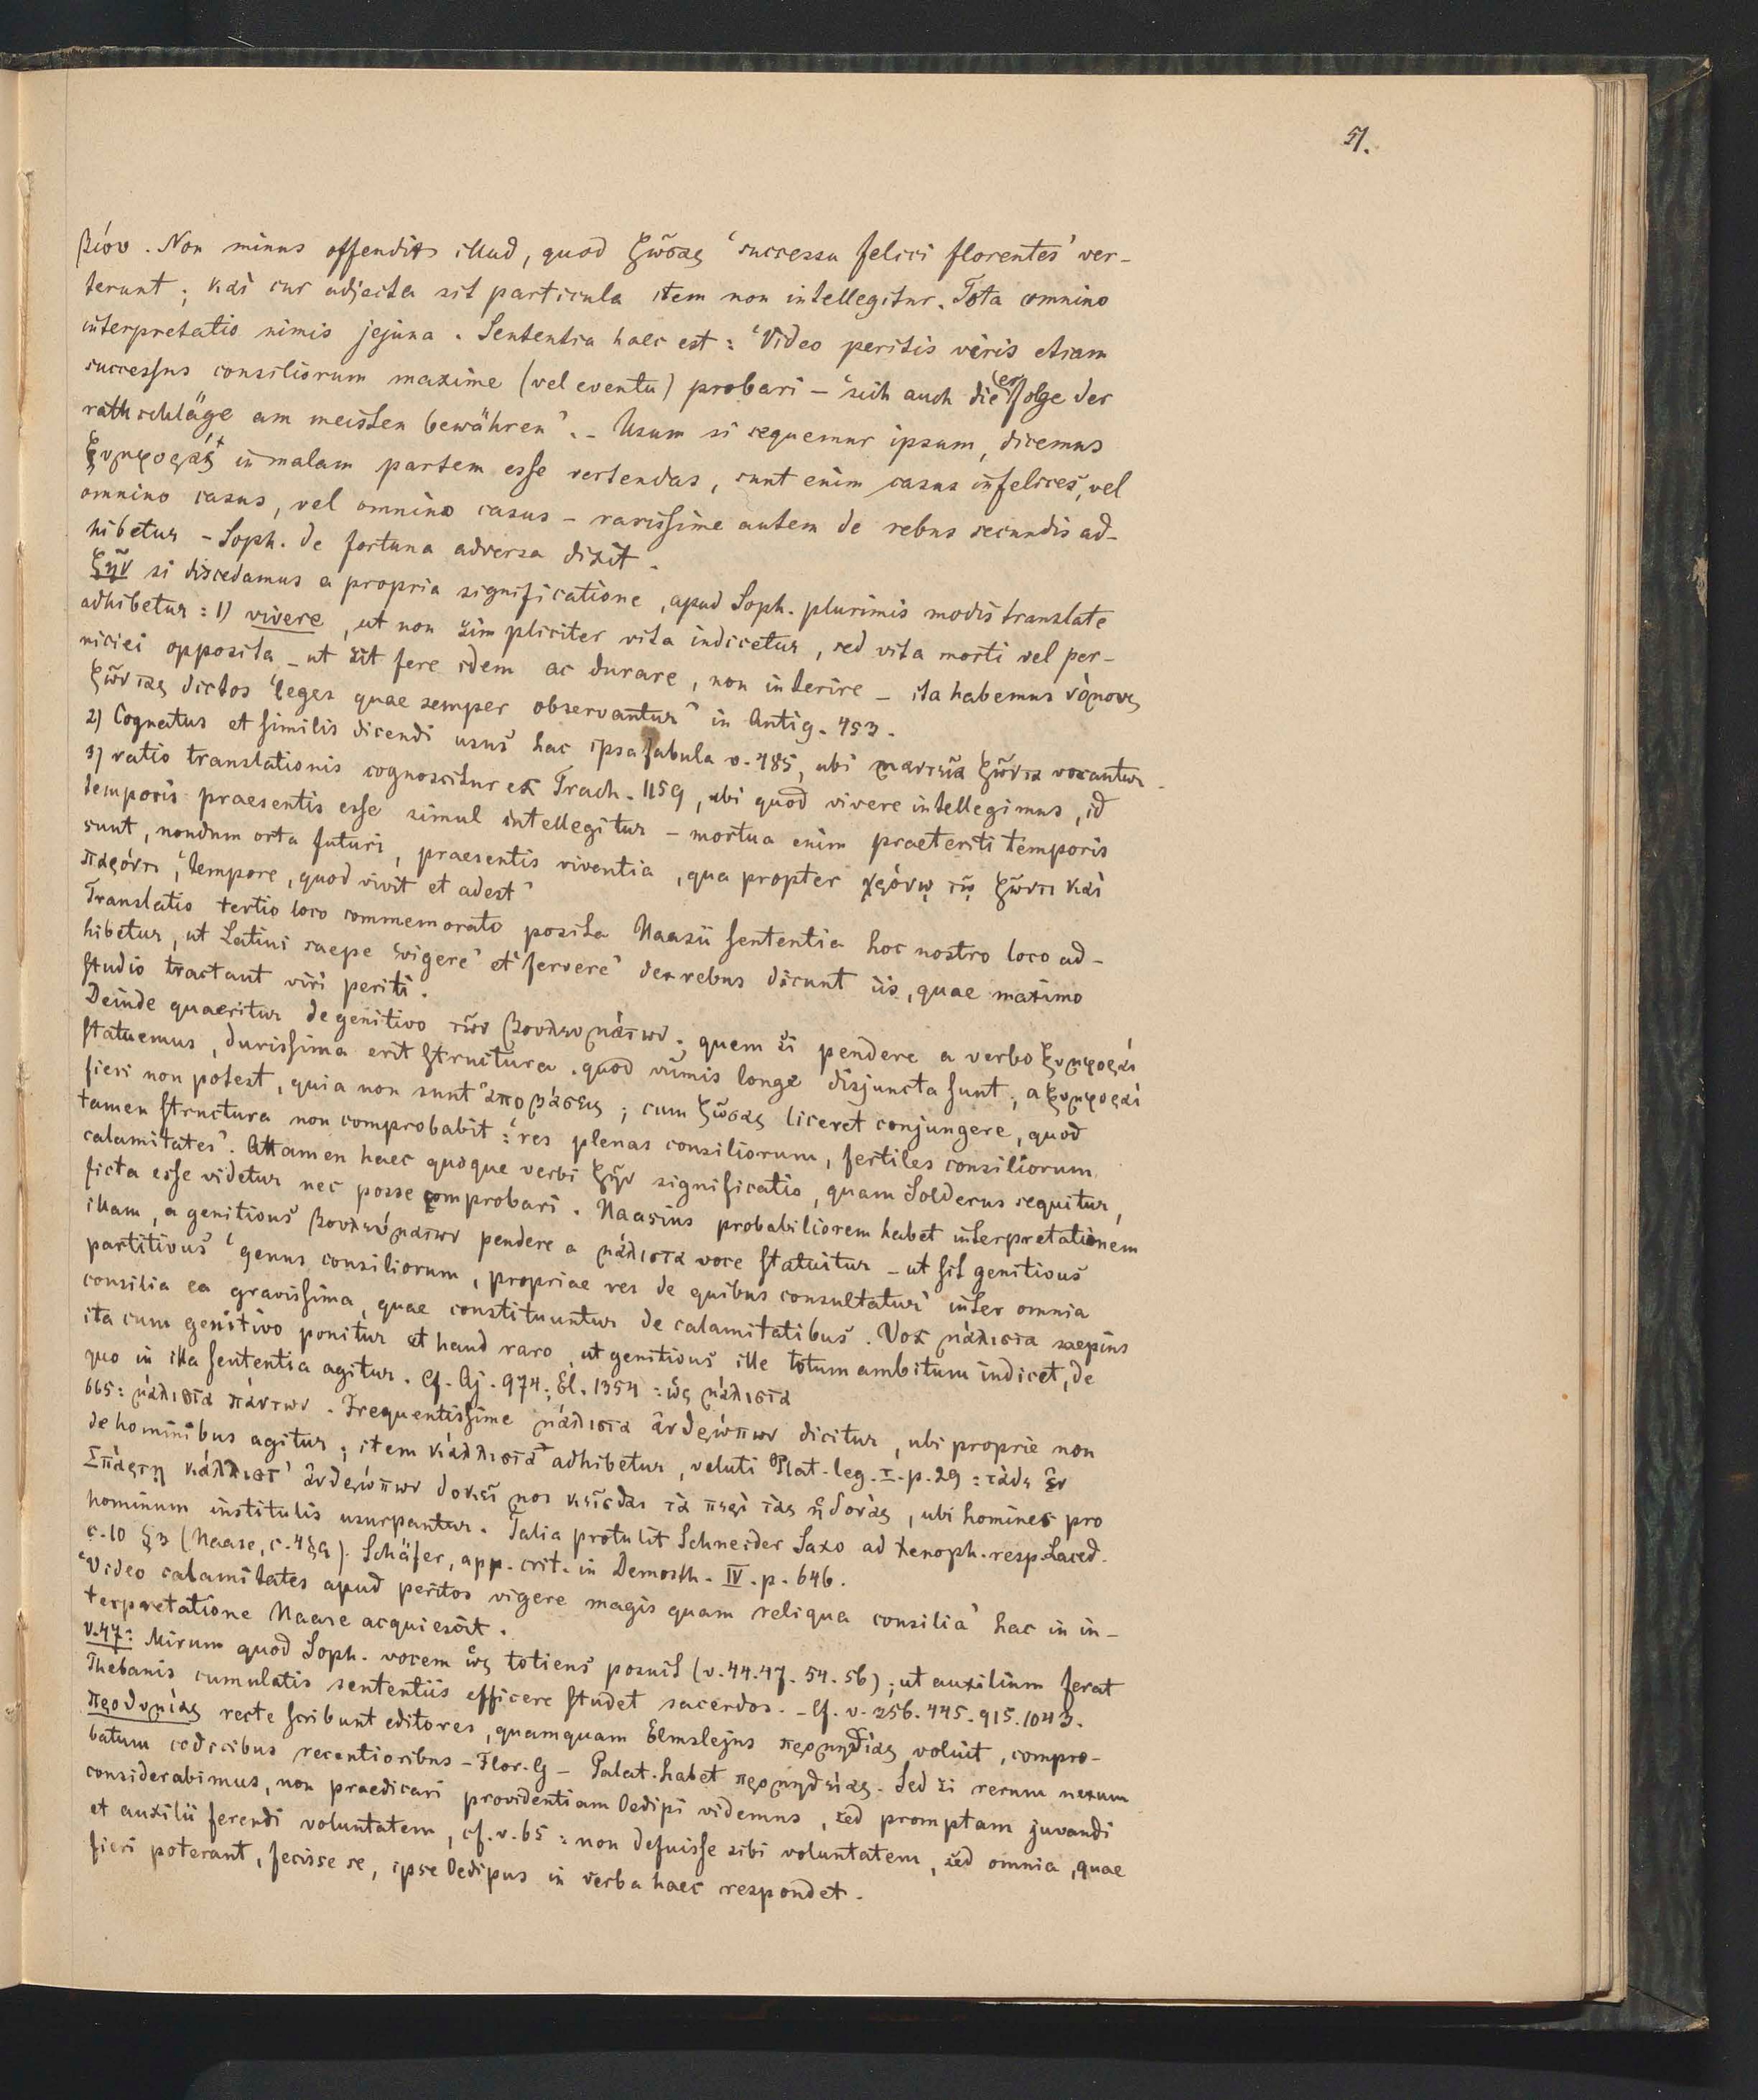 51.
βίον. Non minus offendit illud, quod ζώσας 'successu felici florentes' ver-
terunt; καὶ cur adjecta sit particula item non intellegitur. Tota omnino
interpretatio nimis jejuna. Sententia haec est: 'Video peritis viris etiam
successus consiliorum maxime (vel eventu) probari – 'sich auch die erfolge der
rathschläge am meisten bewähren'. – Usum si sequemur ipsum, dicemus
ξυμφοράς in malam partem esse vertendas, sunt enim casus infelices, vel
omnino casus, vel omnino casus – rarissime autem de rebus secundis ad-
hibetur – Soph. de fortuna adversa dixit.
ζῆν si discedamus a propria significatione, apud Soph. plurimis modis translate
adhibetur: 1) vivere, ut non simpliciter vita indicetur, sed vita morti vel per-
niciei opposita – ut sit fere idem ac durare, non interire – ita habemus νόμους
ζῶντας dictos 'leges quae semper observantur' in Antig. 453.
2) Cognatus et similis dicendi usus hac ipsa fabula v. 485, ubi μαντεῖα ζῶντα vocantur.
3) ratio translationis cognoscitur ex Trach. 1159, ubi quod vivere intellegimus, id
temporis praesentis esse simul intellegitur – mortua enim praeteriti temporis
sunt, nondum orta futuri, praesentis viventia, qua propter χρόνῳ τῷ ζῶντι καὶ
παρόντι, 'tempore, quod vivit et adest'
Translatio tertio loco commemorato posita Naasii sententia hoc nostro loco ad-
hibetur, ut Latini saepe 'vigere' et 'fervere' de rebus dicunt iis, quae maximo
studio tractant viri periti.
Deinde quaeritur de genitivo τῶν βουλευμάτων; quem si pendere a verbo ξυμφοραὶ
statuemus, durissima erit structura. quod nimis longe disjuncta sunt; a ξυμφοραὶ
fieri non potest, quia non sunt ἀποβάσεις; cum ζώσας liceret conjungere, quod
tamen structura non comprobabit: 'res plenas consiliorum, fertiles consiliorum
calamitates'. Attamen haec quoque verbi ζῆν significatio, quam Solderus sequitur,
ficta esse videtur nec posse comprobari. Naasius probabiliorem habet interpretationem
illam, a genitivus βουλευμάτων pendere a μάλιστα voce statuitur – ut sit genitivus
partitivus 'genus consiliorum, propriae res de quibus consultatur' inter omnia
consilia ea gravissima, quae constituuntur de calamitatibus. Vox μάλιστα saepius
ita cum genitivo ponitur et haud raro, ut genitivus ille totum ambitum indicet, de
quo in illa sententia agitur. Cf. Aj. 974; El. 1354: ὡς μάλιστα
665: μάλιστα πάντων. Frequentissime μάλιστα ἀνθρώπων dicitur, ubi proprie non
de hominibus agitur; item κάλλιστα adhibetur, veluti Plat. leg. I. p. 29: τάδε ἐν
Σπάρτῃ κάλλιστ' ἀνθρώπων δοκεῖ μοι κεῖσθαι τὰ περὶ τὰς ἡδονάς, ubi homines pro
hominum institutis usurpantur. Talia protulit Schneider Saxo ad Xenoph. resp. Laced.
c. 10 §3 (Naase, c. 4 §9). Schäfer, app. crit. in Demosth. IV. p. 646.
'Video calamitates apud peritos vigere magis quam reliqua consilia' hac in in-
terpretatione Naase acquiescit.
v. 47: Mirum quod Soph. vocem ὡς totiens posuit (v. 44. 47. 54. 56); ut auxilium ferat
Thebanis cumulatis sententiis efficere studet sacerdos. – Cf. v. 256. 445. 915. 1043.
προθυμίας recte scribunt editores, quamquam Elmslejus προμηθίας voluit, compro-
batum codicibus recentioribus – Flor. G – Palat. habet προμηθείας. Sed si rerum nexum
considerabimus, non praedicari providentiam Oedipi videmus, sed promptam juvandi
et auxilii ferendi voluntatem, cf. v. 65: non defuisse sibi voluntatem, sed omnia, quae
fieri poterant, fecisse se, ipse Oedipus in verba haec respondet.